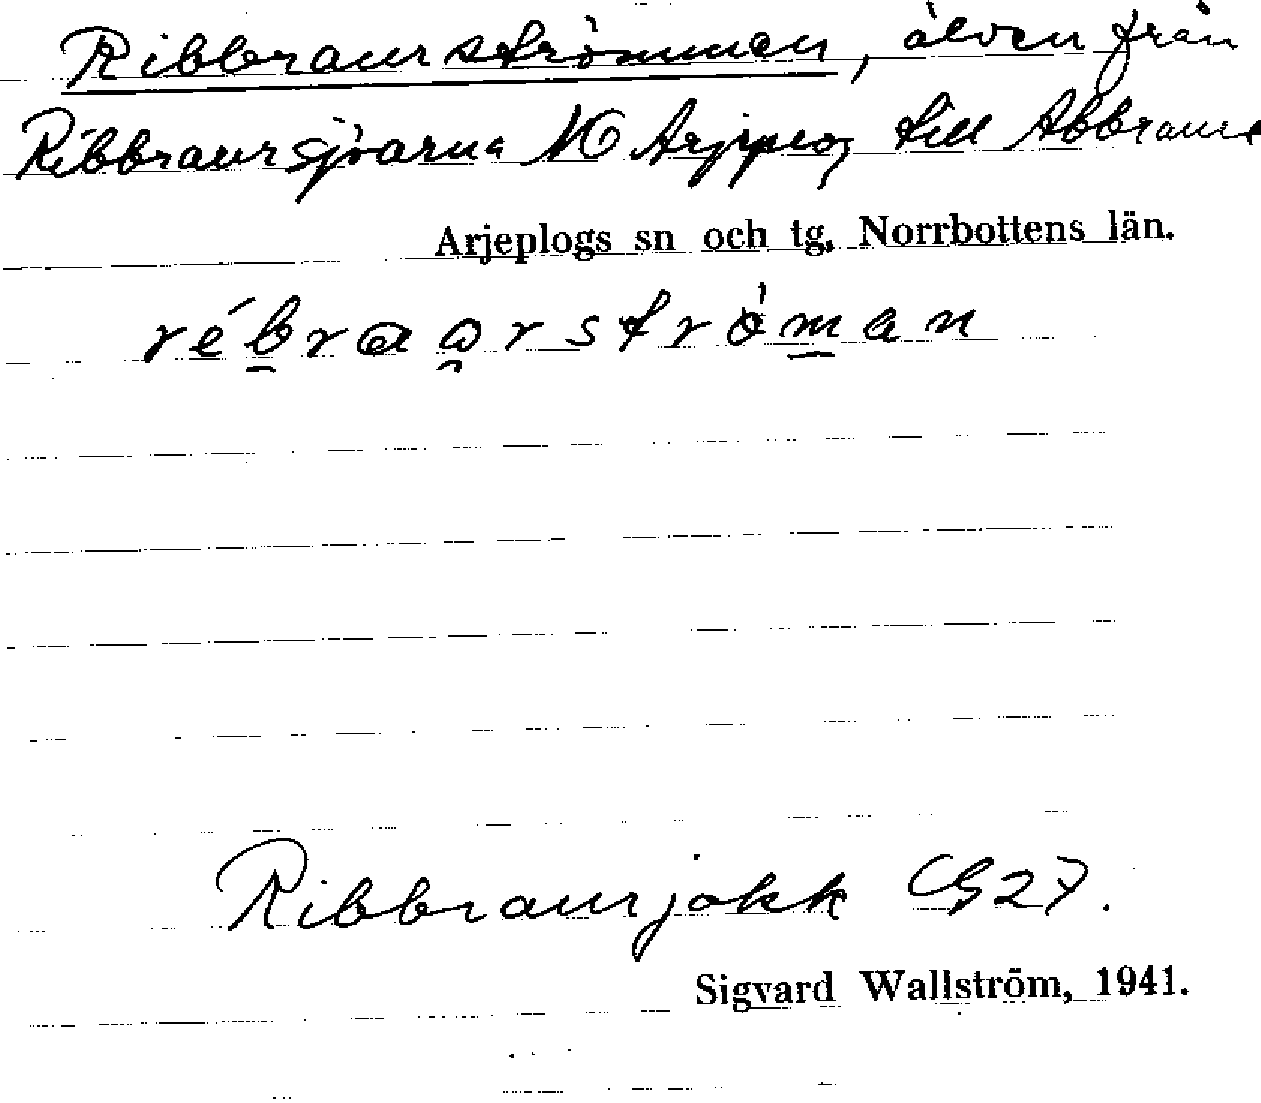 Ribbraurströmmen, älven från
Ribbraursjöarna NO Arjeplog till Abbraure
Arjeplogs sn och tg, Norrbottens län.
rébraɑorströman
Ribbraurjokk CG 27.
Sigvard Wallström, 1941.